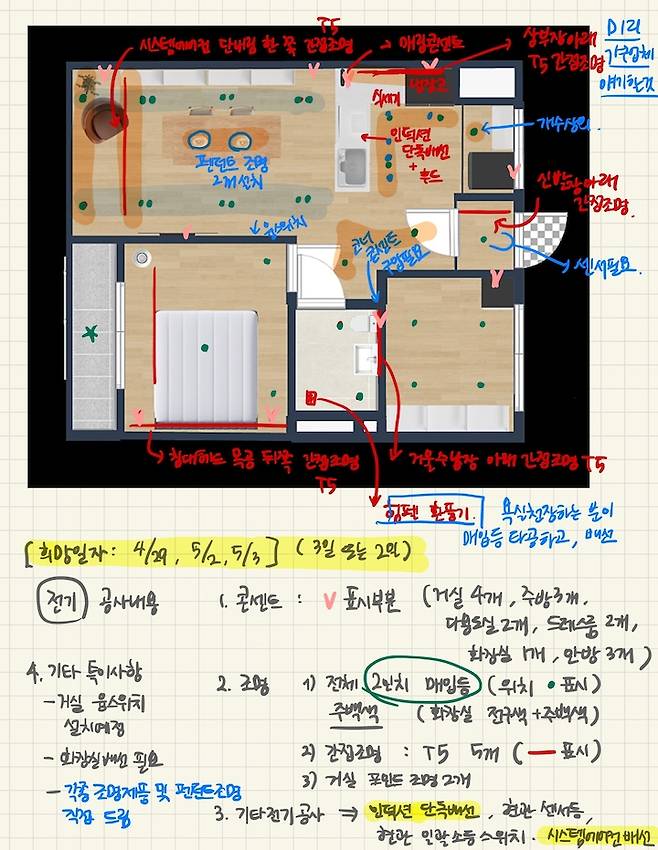 T5
시스템에어컨 단내림 한 쪽 간접조명
→ 매립콘센트
상부장아래
T5 간접조명
미리
가구업체
얘기한것
냉장고
식세기
인덕션
단독배선
+
후드
개수상의
펜던트 조명
2개 설치
신발장아래
간접조명.
융스위치
코너
콘센트
구입필요
센서필요.
침대헤드 목공 뒤쪽 간접조명
T5
거울수납장 아래 간접조명 T5
힘펠 환풍기.
욕실천장하는 분이
매입등 타공하고, 배선
[희망일자: 4/29, 5/2, 5/3] (3일 또는 2일)
전기 공사내용
1. 콘센트 : V 표시부분 (거실 4개, 주방3개,
다용도실 2개, 드레스룸 2개,
화장실 1개, 안방 3개)
4. 기타 특이사항
- 거실 융스위치
설치예정
- 화장실배선 필요
- 각종 조명제품 및 펜던트조명
직접 드림
2. 조명
1) 전체 2인치 매입등 (위치 • 표시)
주백색 (화장실 전구색+주백색)
2) 간접조명 : T5 5개 (— 표시)
3) 거실 포인트 조명 2개
3. 기타전기공사 ⇒ 인덕션 단독배선, 현관 센서등,
현관 일괄소등스위치. 시스템에어컨 배선